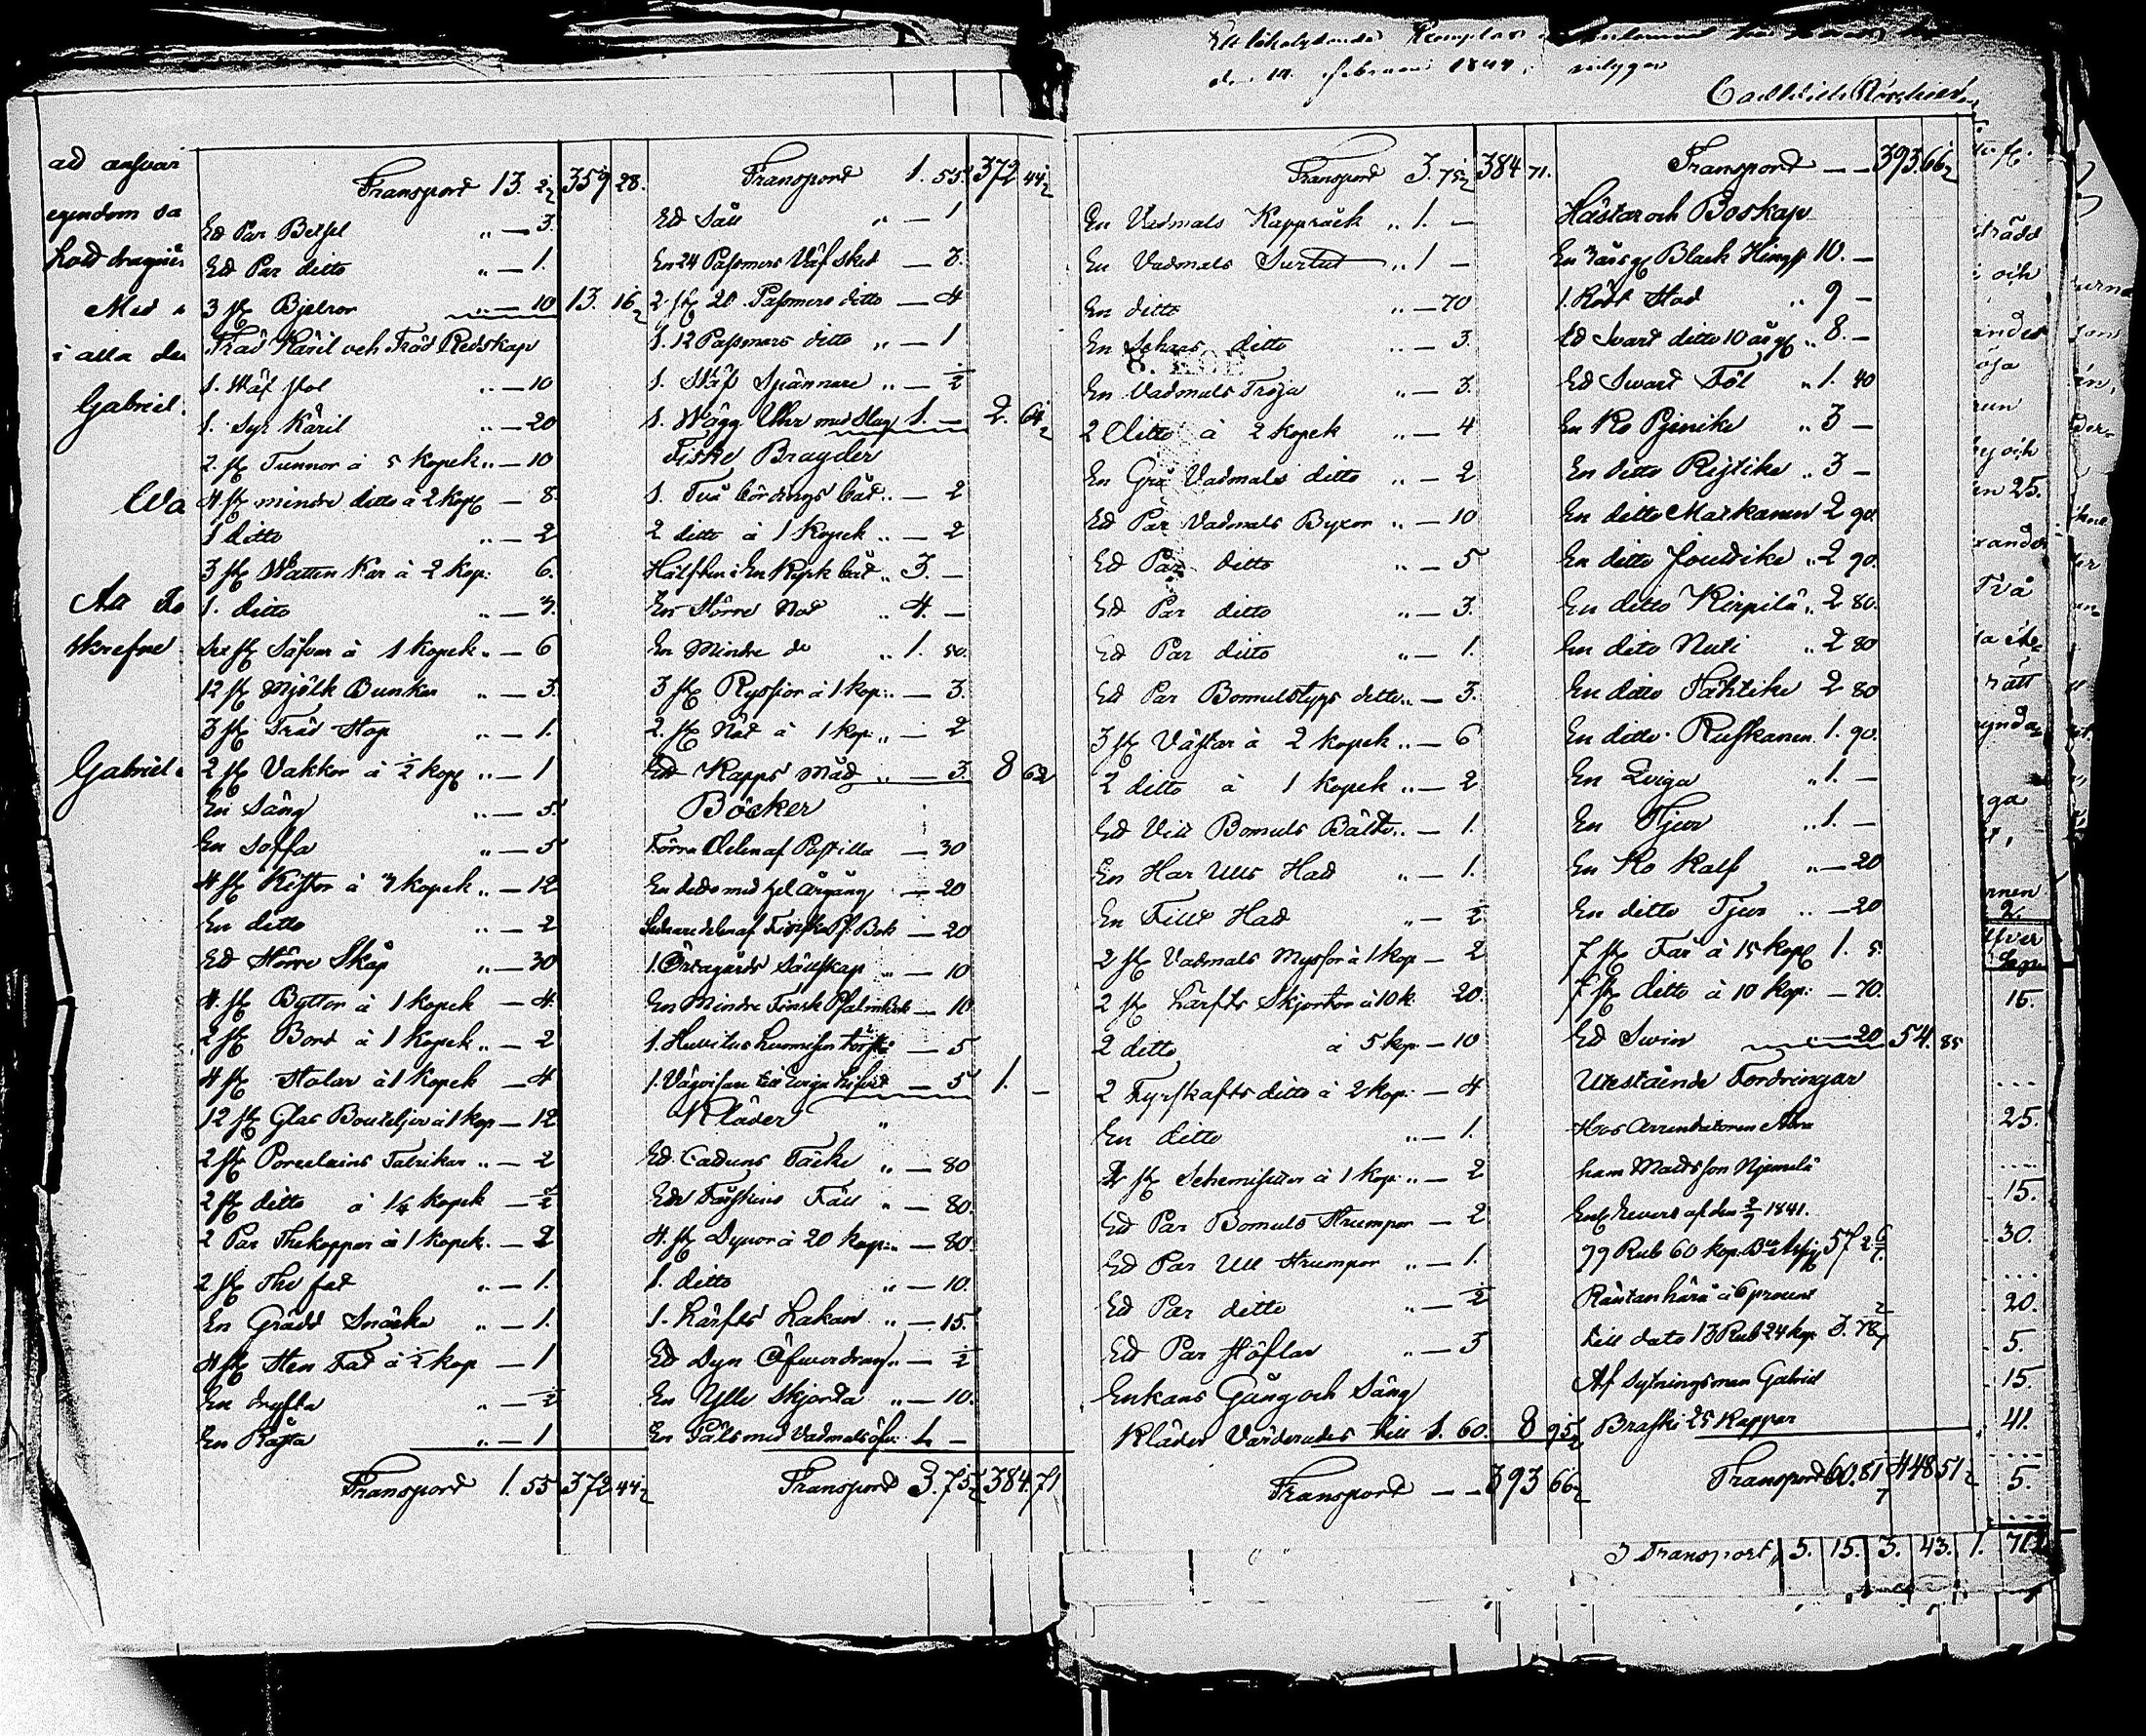 den 14. Februari 1844.
Transport 13. 2½ 359 28.
Ett Par Betsel „ — 3.
Ett Par ditto „ — 1.
3 st Bjelror „ — 10 13. 16½
Träd Käril och Träd Redskap
1. Wäf stol „ — 10
1. Syr Käril „ — 20
2. st Tunnor à 5 Kopek „ — 10
4. st mindre ditto à 2 Kop — 8.
1 ditto „ — 2
3 st Watten Kar à 2 Kop: 6.
1. ditto „ — 3.
Sex st Säfvar à 1 Kopek „ — 6
12 st Mjölk Bunkar „ — 3.
3 st Träd Stop „ — 1.
2 st Vakkor à ½ kop „ — 1
En Säng „ — 5.
En Soffa „ — 5
4 st Kistor à 3 kopek „ — 12
En ditto „ — 2
Ett Större Skåp „ — 30
4. st Byttor à 1 kopek — 4.
2 st Bord à 1 Kopek „ — 2
4 st Stolar à 1 Kopek — 4
12 st Glas Bouteljer à 1 kop — 12
2 st Porcelains Talrikar „ — 2
2 st ditto à ¼ kopek — ½
2 Par Thekoppar à 1 kopek. — 2
2 st The fat „ — 1.
En Grädd Snäcka „ — 1.
4 st Sten Fat à ½ kop — 1
En dryfta „ — ½
En Råga „ — 1
Transport 1. 55 372 44½
Transport 1. 55. 372 44½
Ett Såll „ — 1
En 24 Pasmers Väf Sked — 3.
2. st 20. Pasmers ditto — 4
1. 12 Pasmers ditto „ — 1
1. Wäf Spännare „ — ½
1. Wägg Uhr med Slag 1. — 2. 64½
Fiske Bragder
1. Två bördings båt „ — 2
2 ditto à 1 Kopek „ — 2
Hälften i En Kyrk båt „ 3. —
En Större Not „ 4. —
En Mindre do „ 1. 50.
3 st Ryssjor à 1 kop: „ — 3.
2. st Nät à 1 kop „ — 2
Ett Kapps Mått „ — 3. 8 62
Böcker
Förra Delen af Postilla — 30
En ditto med hel årgång — 20
Sednare delen af Finska Ps. Bok — 20
1. Örtagårds Sällskap „ — 10
En Mindre Finsk Psalmbok — 10
1. Huutawan — 5
1. Vägvisare till Ewiga Lifvet — 5 1. —
Kläder „
Ett Cattuns Täcke „ — 80
Ett Fårskins Fäll „ — 80.
4. st Dynor à 20 kop: „ — 80.
1. ditto „ — 10.
1. Lärfts Lakan „ — 15.
Ett Dyn Öfverdrag „ — ½
En Ylle Skjorta „ — 10.
En Päls med Vadmals öfv: 1. —
Transport 3. 75½ 384. 71
Transport 3. 75½ 384 71.
En Vadmals Kapprock „ 1. —
En Vadmals Surtut „ 1 —
En ditto „ — 70
En Schars ditto „ — 3.
En Vadmals Tröja „ — 3.
2 Ditto à 2 kopek „ — 4
En Grå Vadmals ditto „ — 2
Ett Par Vadmals Byxor „ — 10
Ett Par ditto „ — 5
Ett Par ditto „ — 3.
Ett Par ditto „ — 1.
Ett Par Bomulstygs ditto „ — 3.
3 st Västar à 2 kopek „ — 6
2 ditto à 1 kopek „ — 2
Ett Vitt Bomuls Bälte „ — 1.
En Har Ulls Hatt „ — 1.
En Fillt Hatt „ — ½
2 st Vadmals Myssor à 1 kop — 2
2 st Lärfts Skjortor à 10 k. 20.
2 ditto à 5 kop — 10
2 Fyrskafts ditto à 2 kop: — 4
En ditto „ — 1.
2 st Schemisetter à 1 kop: „ — 2
Ett Par Bomuls Strumpor — 2
Ett Par Ull Strumpor „ — 1.
Ett Par ditto „ — ½
Ett Par Stöflar „ — 3
Enkans Gång och Säng
Kläder Värderades till 1. 60. 8 95½
Transport — — 393 66½
Transport — — 393. 66½
Hästar och Boskap
En 3 års gl Black Hingst 10. —
1. Rödt Stod „ 9 —
Ett Svart ditto 10 års gl „ 8. —
Ett Svart Föl „ 1. 40
En Ko Pjenike „ 3 —
En ditto Rijtike „ 3 —
En ditto Markanen 2 90.
En ditto Joutike „ 2 90.
En ditto Kirpilä „ 2 80.
En dito Nuti „ 2 80
En ditto Tähtike 2 80
En ditto Ruskanen 1. 90.
En Qviga „ 1. —
En Tjur „ 1. —
En Ko Kalf „ — 20
En ditto Tjur „ — 20
7 st Får à 15 kop 1. 5.
7 st ditto à 10 kop: — 70.
Ett Svin — 20 54. 85
Utestående Fordringar
Hos Arrendatoren Abra
ham Mattsson Njemelä
Enl. Revers af den 2/7 1841.
99 Rub 60 kop. Bco Assig 57 2 6/7.
Räntan härå à 6 procent
till dato 13 Rub 24 kop 3. 78 2/7
Af Sytningsman Gabriel
Braski 25 Kappar
Transport 60. 81 1/7 448 51½
I Transport, 5. 15. 3. 43. 1. 71
ad ansvar
egendom sa
Med
i alla de
Gabriel
skrefne
Gabriel
och
25.
Två
rätt
ga
15.
25.
15.
30.
20.
5.
15.
41.
5.